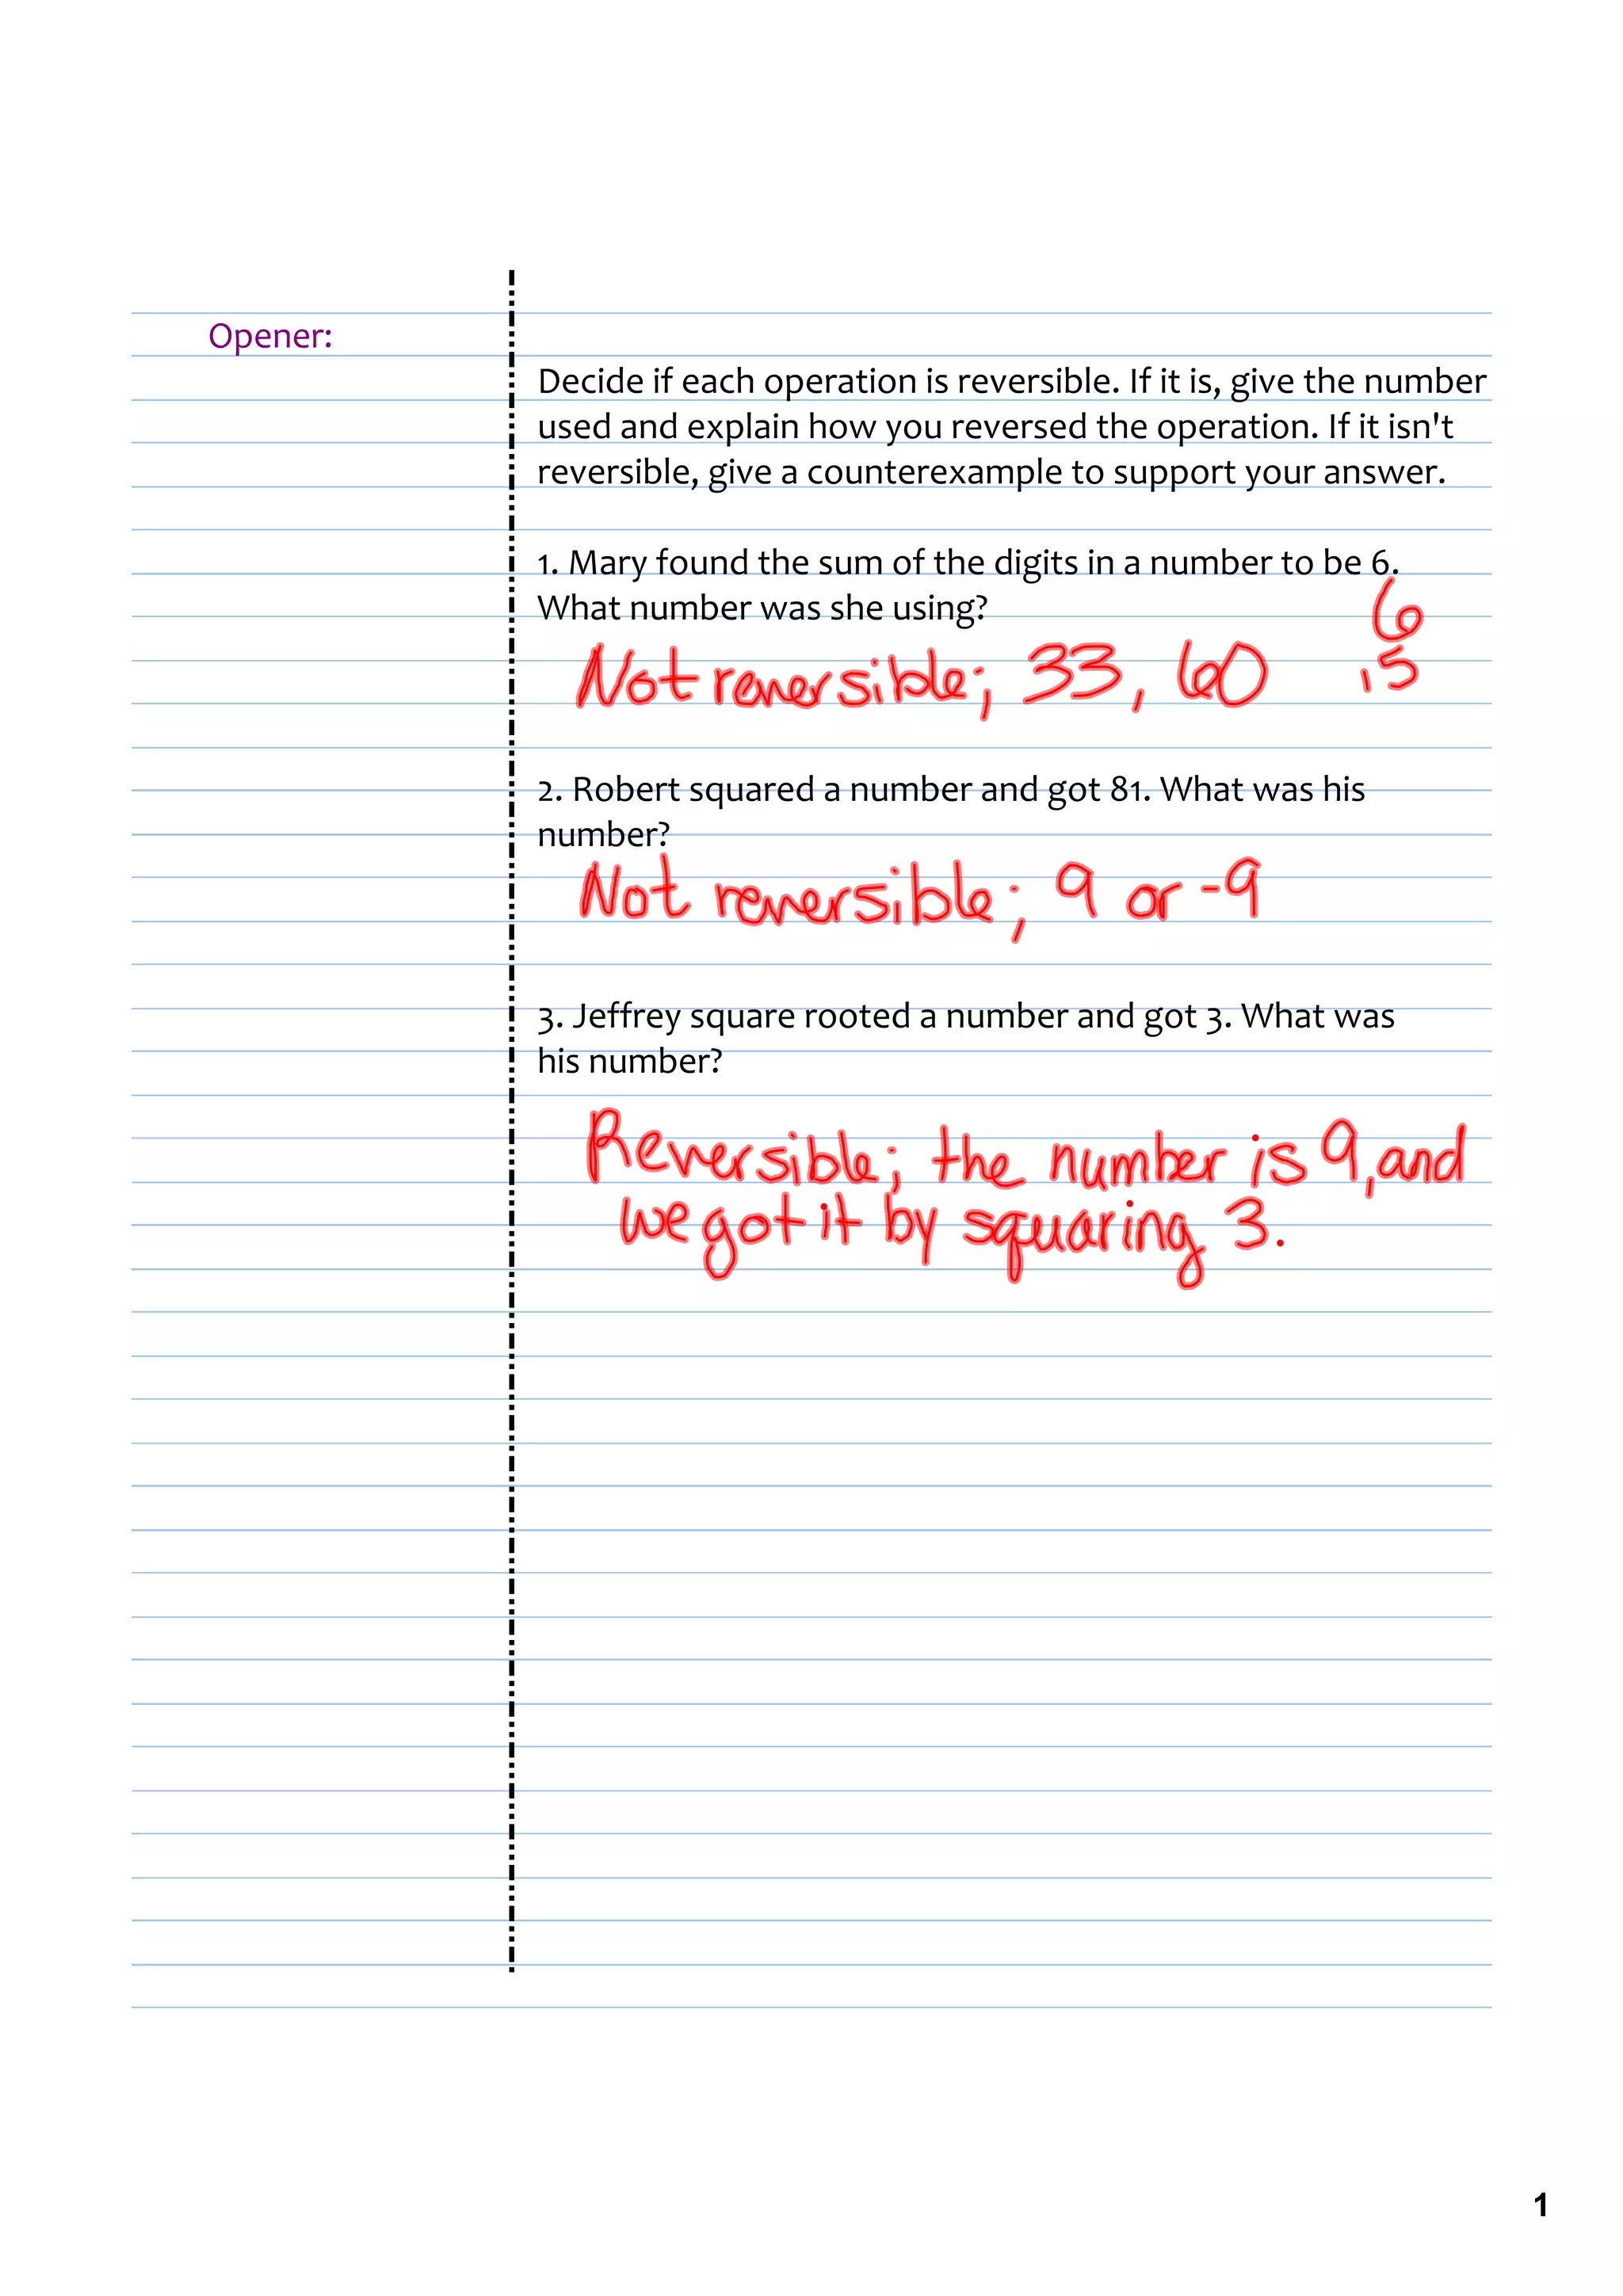 Opener:
Decide if each operation is reversible. If it is, give the number
used and explain how you reversed the operation. If it isn't
reversible, give a counterexample to support your answer.
1. Mary found the sum of the digits in a number to be 6.
What number was she using?
6
Not reversible; 33, 60 15
2. Robert squared a number and got 81. What was his
number?
Not reversible; 9 or -9
3. Jeffrey square rooted a number and got 3. What was
his number?
Reversible; the number is 9, and
we got it by squaring 3.
1